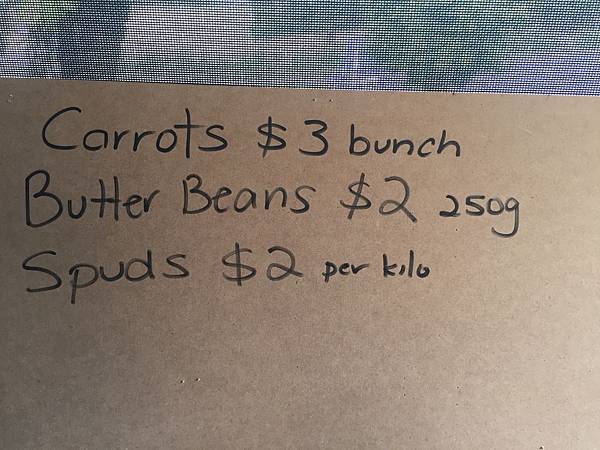 Carrots $3 bunch
Butter Beans $2 250g
Spuds $2 per kilo